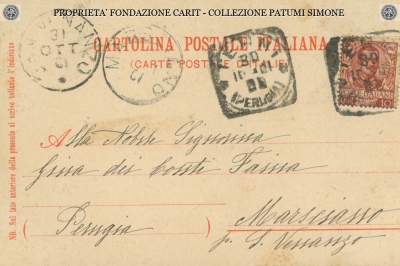 PROPRIETA' FONDAZIONE CARIT - COLLEZIONE PATUMI SIMONE
CARTOLINA POSTALE ITALIANA
(CARTE POSTALE D'ITALIE)
(PERUGIA)
Nb. Sul lato anteriore della presente si scrive soltanto l'indirizzo
Alla Nobile Signorina
Gina dei Conti Faina
Marsciano
(Perugia)
p. S. Venanzo